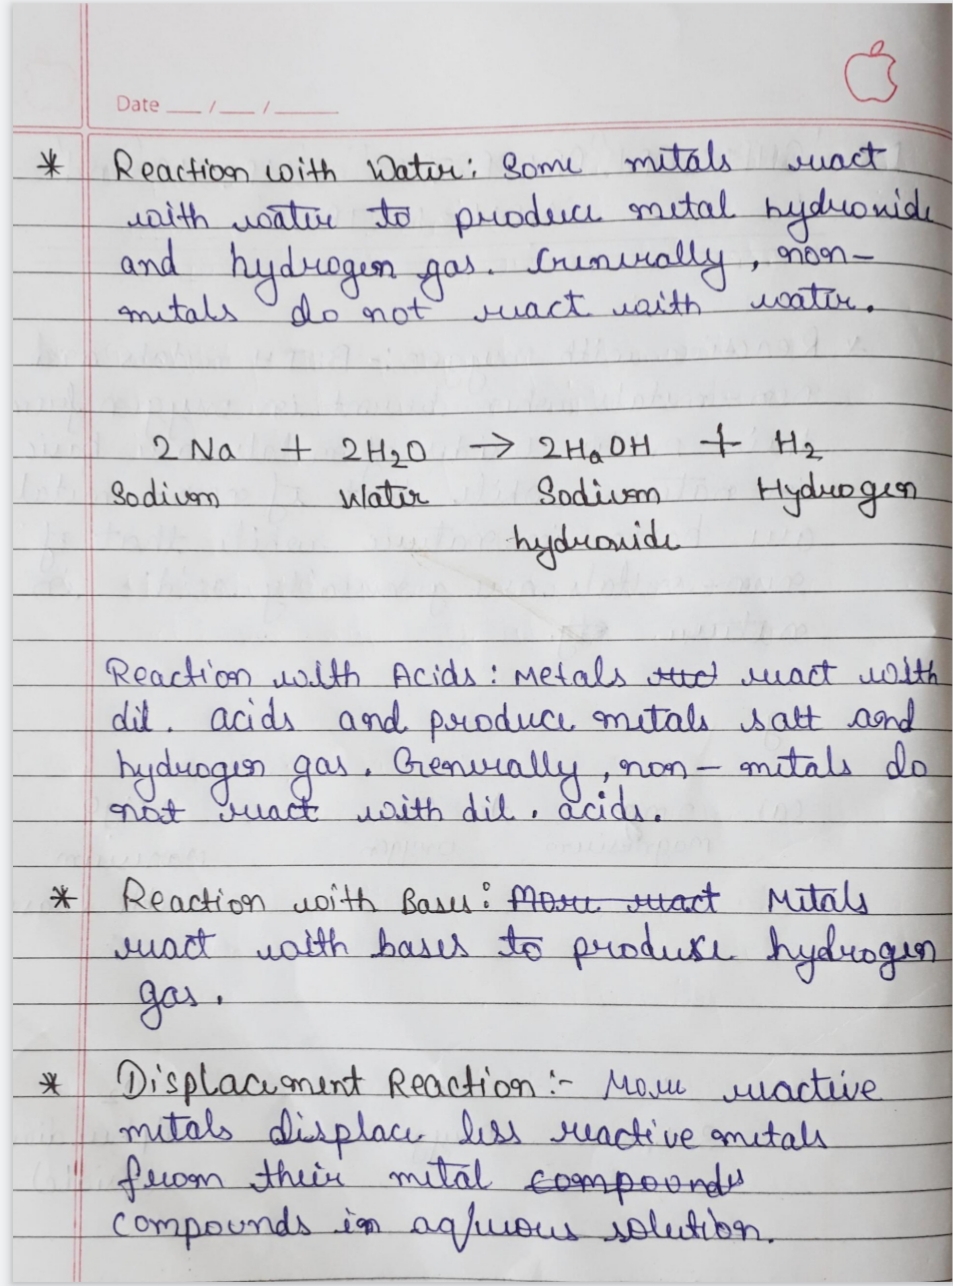 Date __/__/____
* Reaction with Water: Some metals react
with water to produce metal hydroxide
and hydrogen gas. Generally, non-
metals do not react with water.
2 Na + 2H2O → 2HaOH + H2
Sodium Water Sodium Hydrogen
hydroxide
Reaction with Acids: Metals react with
dil. acids and produce metals salt and
hydrogen gas. Generally, non-metals do
not react with dil. acids.
* Reaction with Bases: More react Metals
react with bases to produce hydrogen
gas.
* Displacement Reaction:- More reactive
metals displace less reactive metals
from their metal compounds
compounds in aqueous solution.